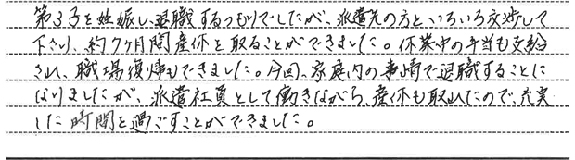 第3子を妊娠し、退職するつもりでしたが、派遣先の方といろいろ交渉して
下さり、約7ヶ月間産休を取ることができました。休業中の手当も支給
され、職場復帰もできました。今回、家庭内の事情で退職することに
なりましたが、派遣社員として働きながら、産休も取れたので、充実
した時間を過ごすことができました。